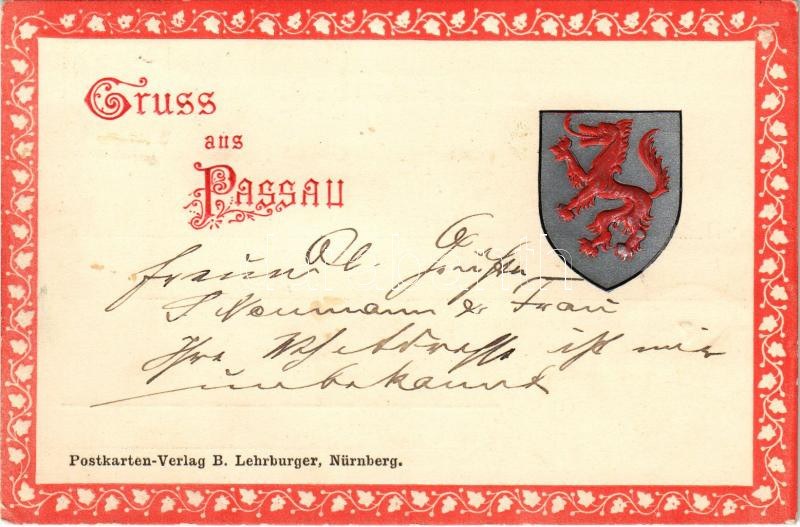 Gruss
aus
Passau
freundl. Grüße
S Neumann & Frau
Ihre ist mir
unbekannt
Postkarten-Verlag B. Lehrburger, Nürnberg.